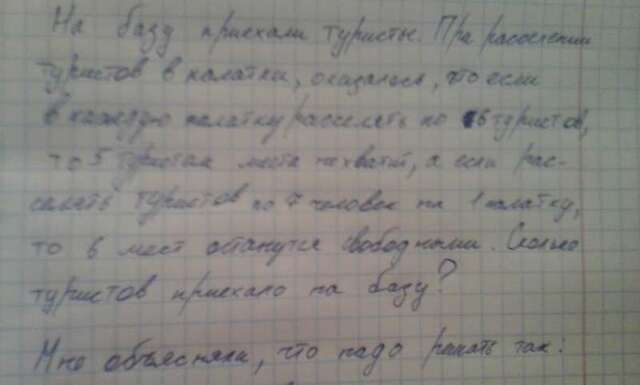 На базу приехали туристы. При расселении
туристов в палатки, оказалось, что если
в каждую палатку расселять по 6 туристов,
то 5 туристам места не хватит, а если рас-
селять туристов по 7 человек на 1 палатку,
то 6 мест останутся свободными. Сколько
туристов приехало на базу?
Мне объясняли, что надо решать так: